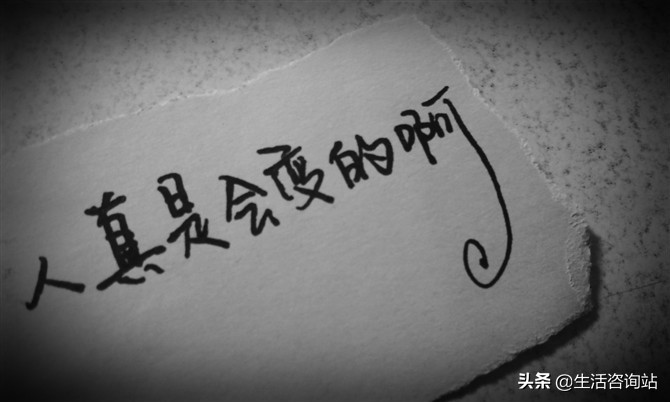 人真是会变的啊
头条 @生活咨询站